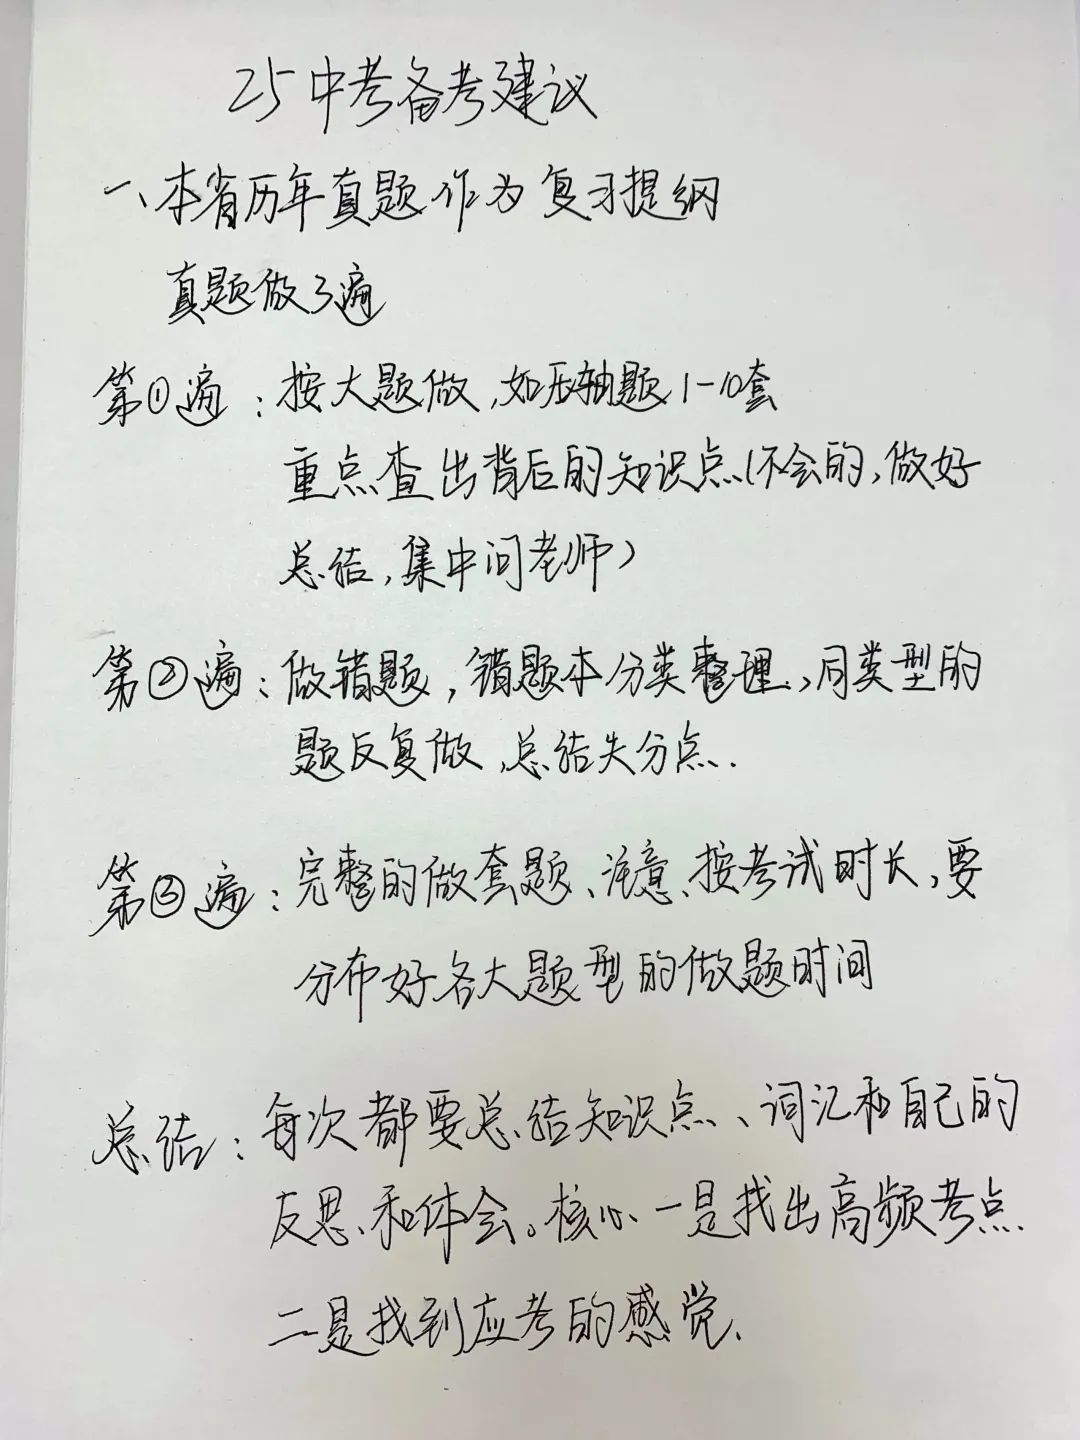 25中考备考建议
一、本省历年真题作为复习提纲
真题做3遍
第①遍：按大题做，如压轴题1-10套
重点查出背后的知识点(不会的，做好
总结，集中问老师)
第②遍：做错题，错题本分类整理，同类型的
题反复做，总结失分点.
第③遍：完整的做套题、注意、按考试时长，要
分布好各大题型的做题时间
总结：每次都要总结知识点、词汇和自己的
反思和体会。核心一是找出高频考点
二是找到应考的感觉.